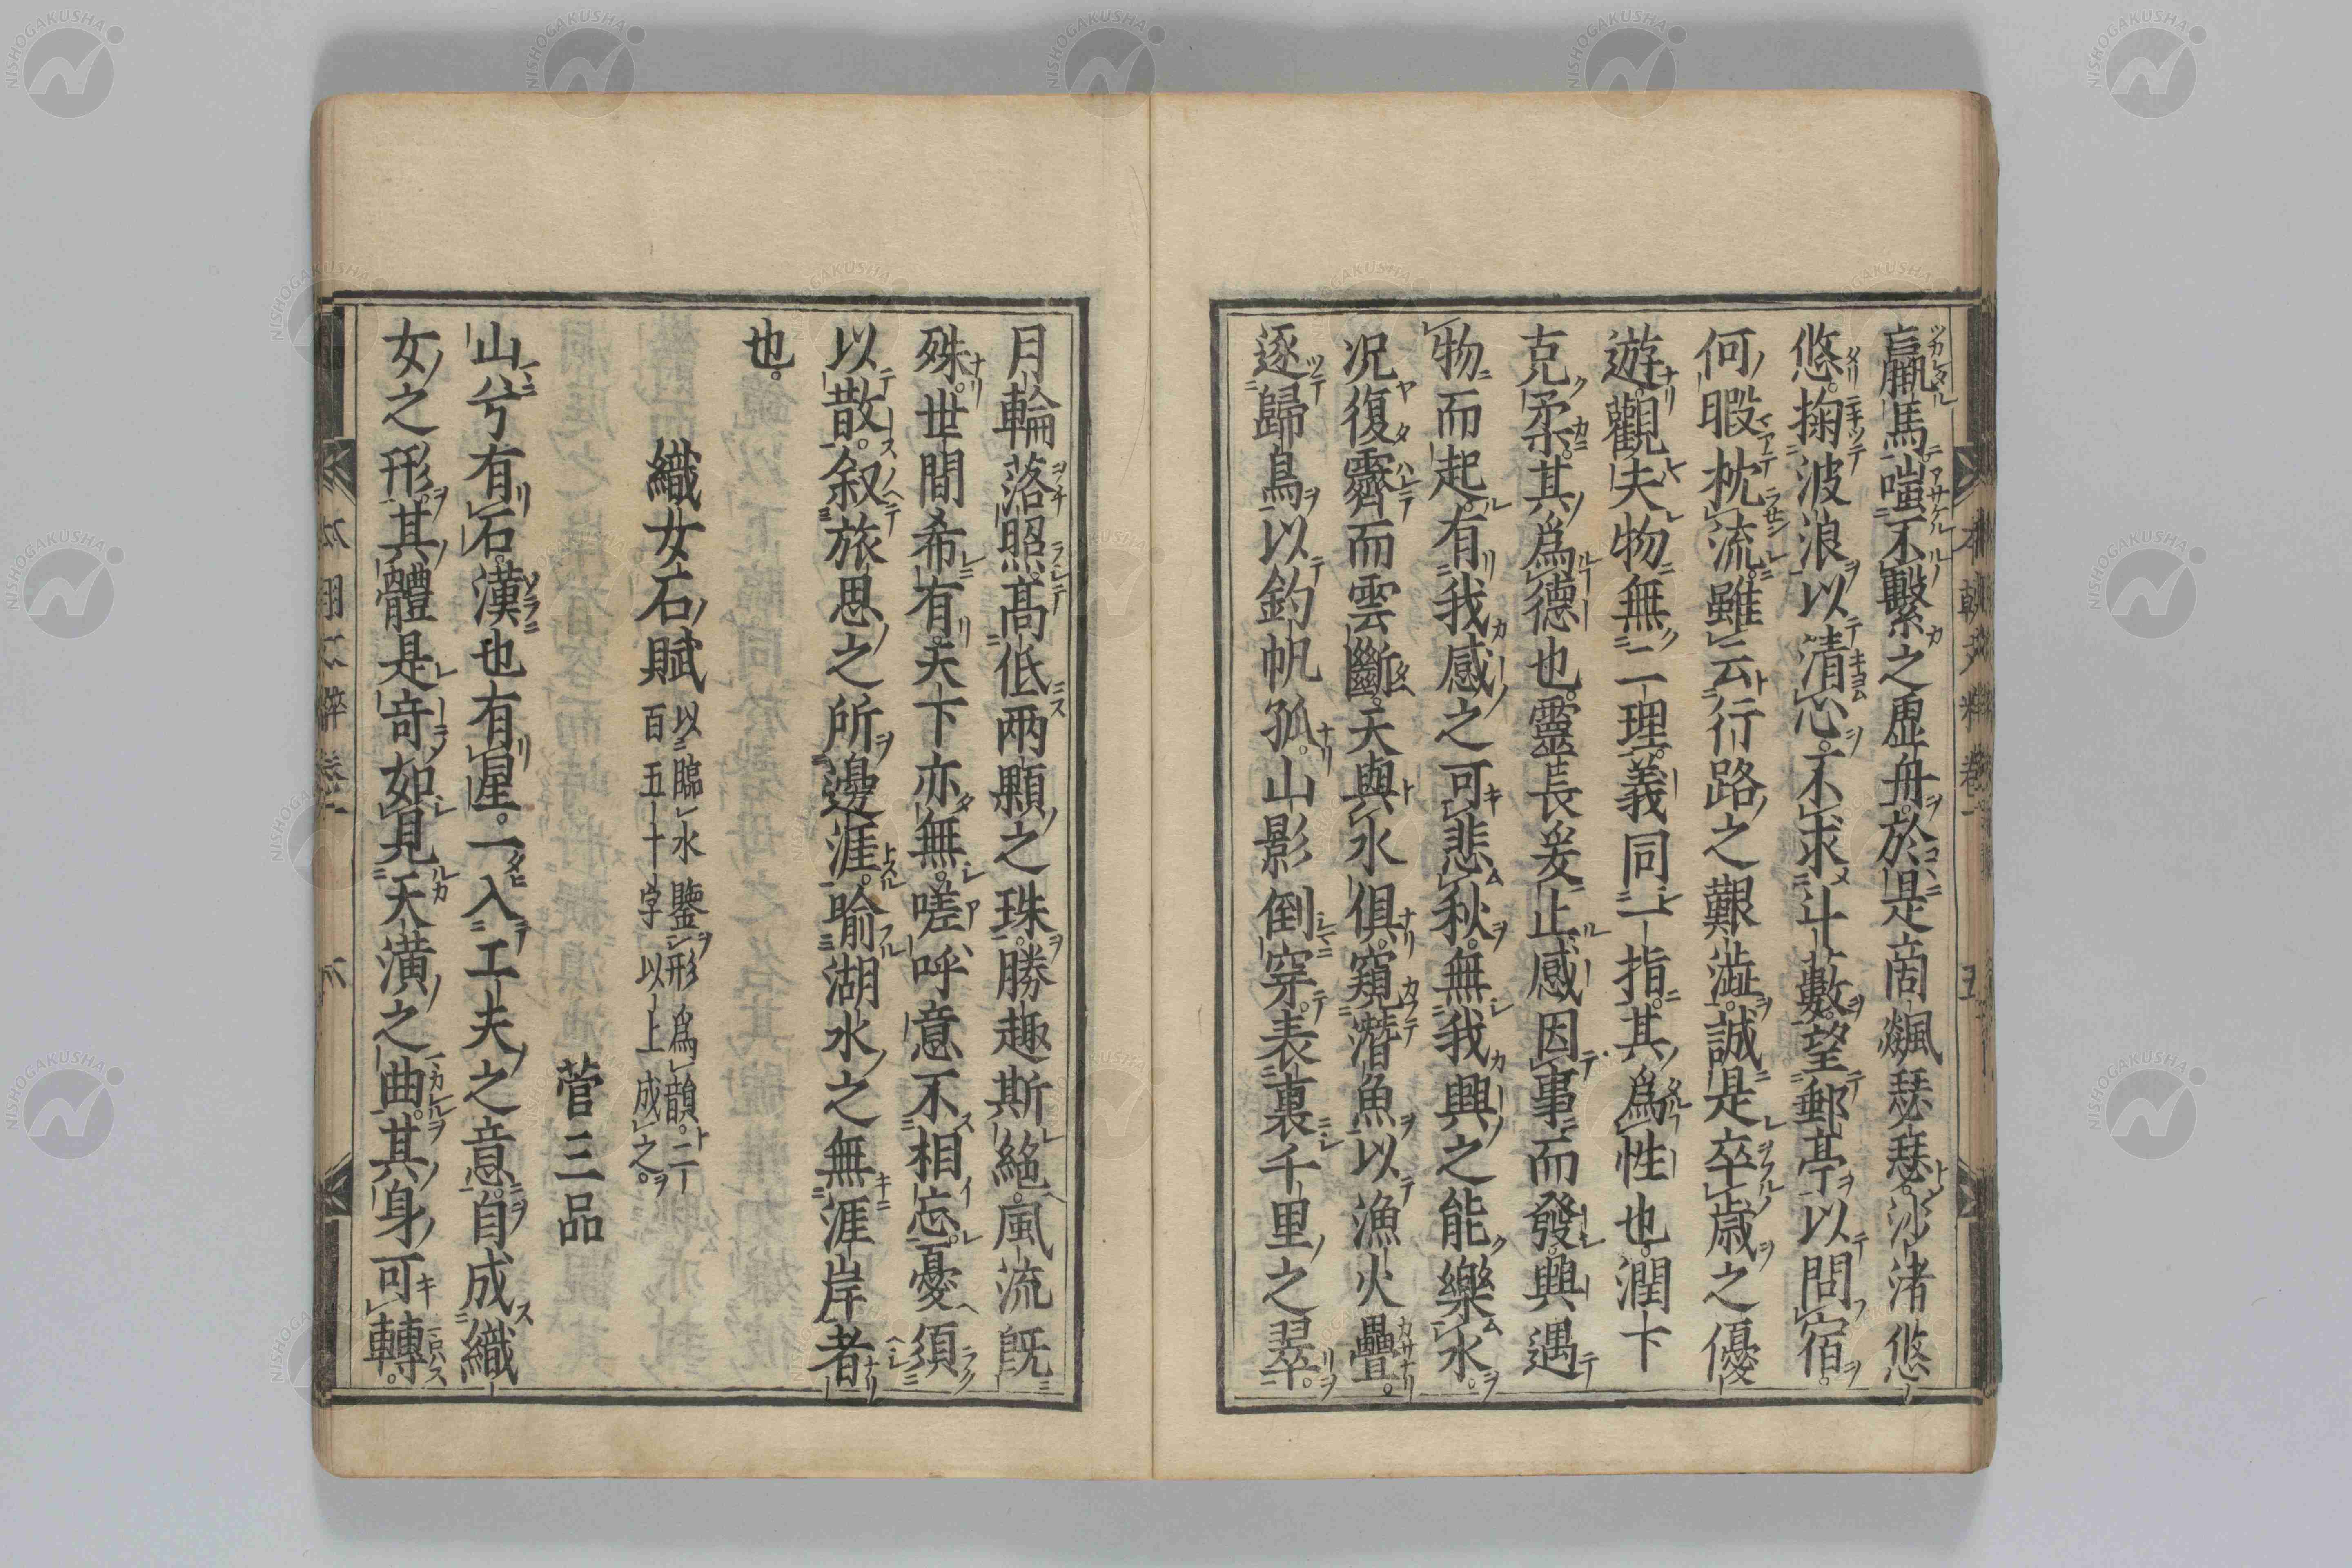 羸馬嗤不繫之虛舟於是商飊瑟瑟沙渚悠
悠掬波浪以清心不求斗藪望郵亭以問宿
何暇枕流雖云行路之艱澁誠是卒歲之優
遊觀夫物無二理義同一指其爲性也潤下
克柔其爲德也靈長爰止感因事而發興遇
物而起有我感之可悲秋無我興之能樂水
况復霽而雲斷天與水俱窺潛魚以漁火疊
逐歸鳥以釣帆孤山影倒穿表裏千里之翠
月輪落照高低兩顆之珠勝趣斯絕風流旣
殊世間希有天下亦無嗟呼意不相忘憂須
以散叙旅思之所邊涯喻湖水之無涯岸者
也
織女石賦 以臨水鑒形爲韻二
百五十字以上成之
菅三品
山兮有石漢也有星一入工夫之意自成織
女之形其體是奇如見天潢之曲其身可轉
NISHOGAKUSHA